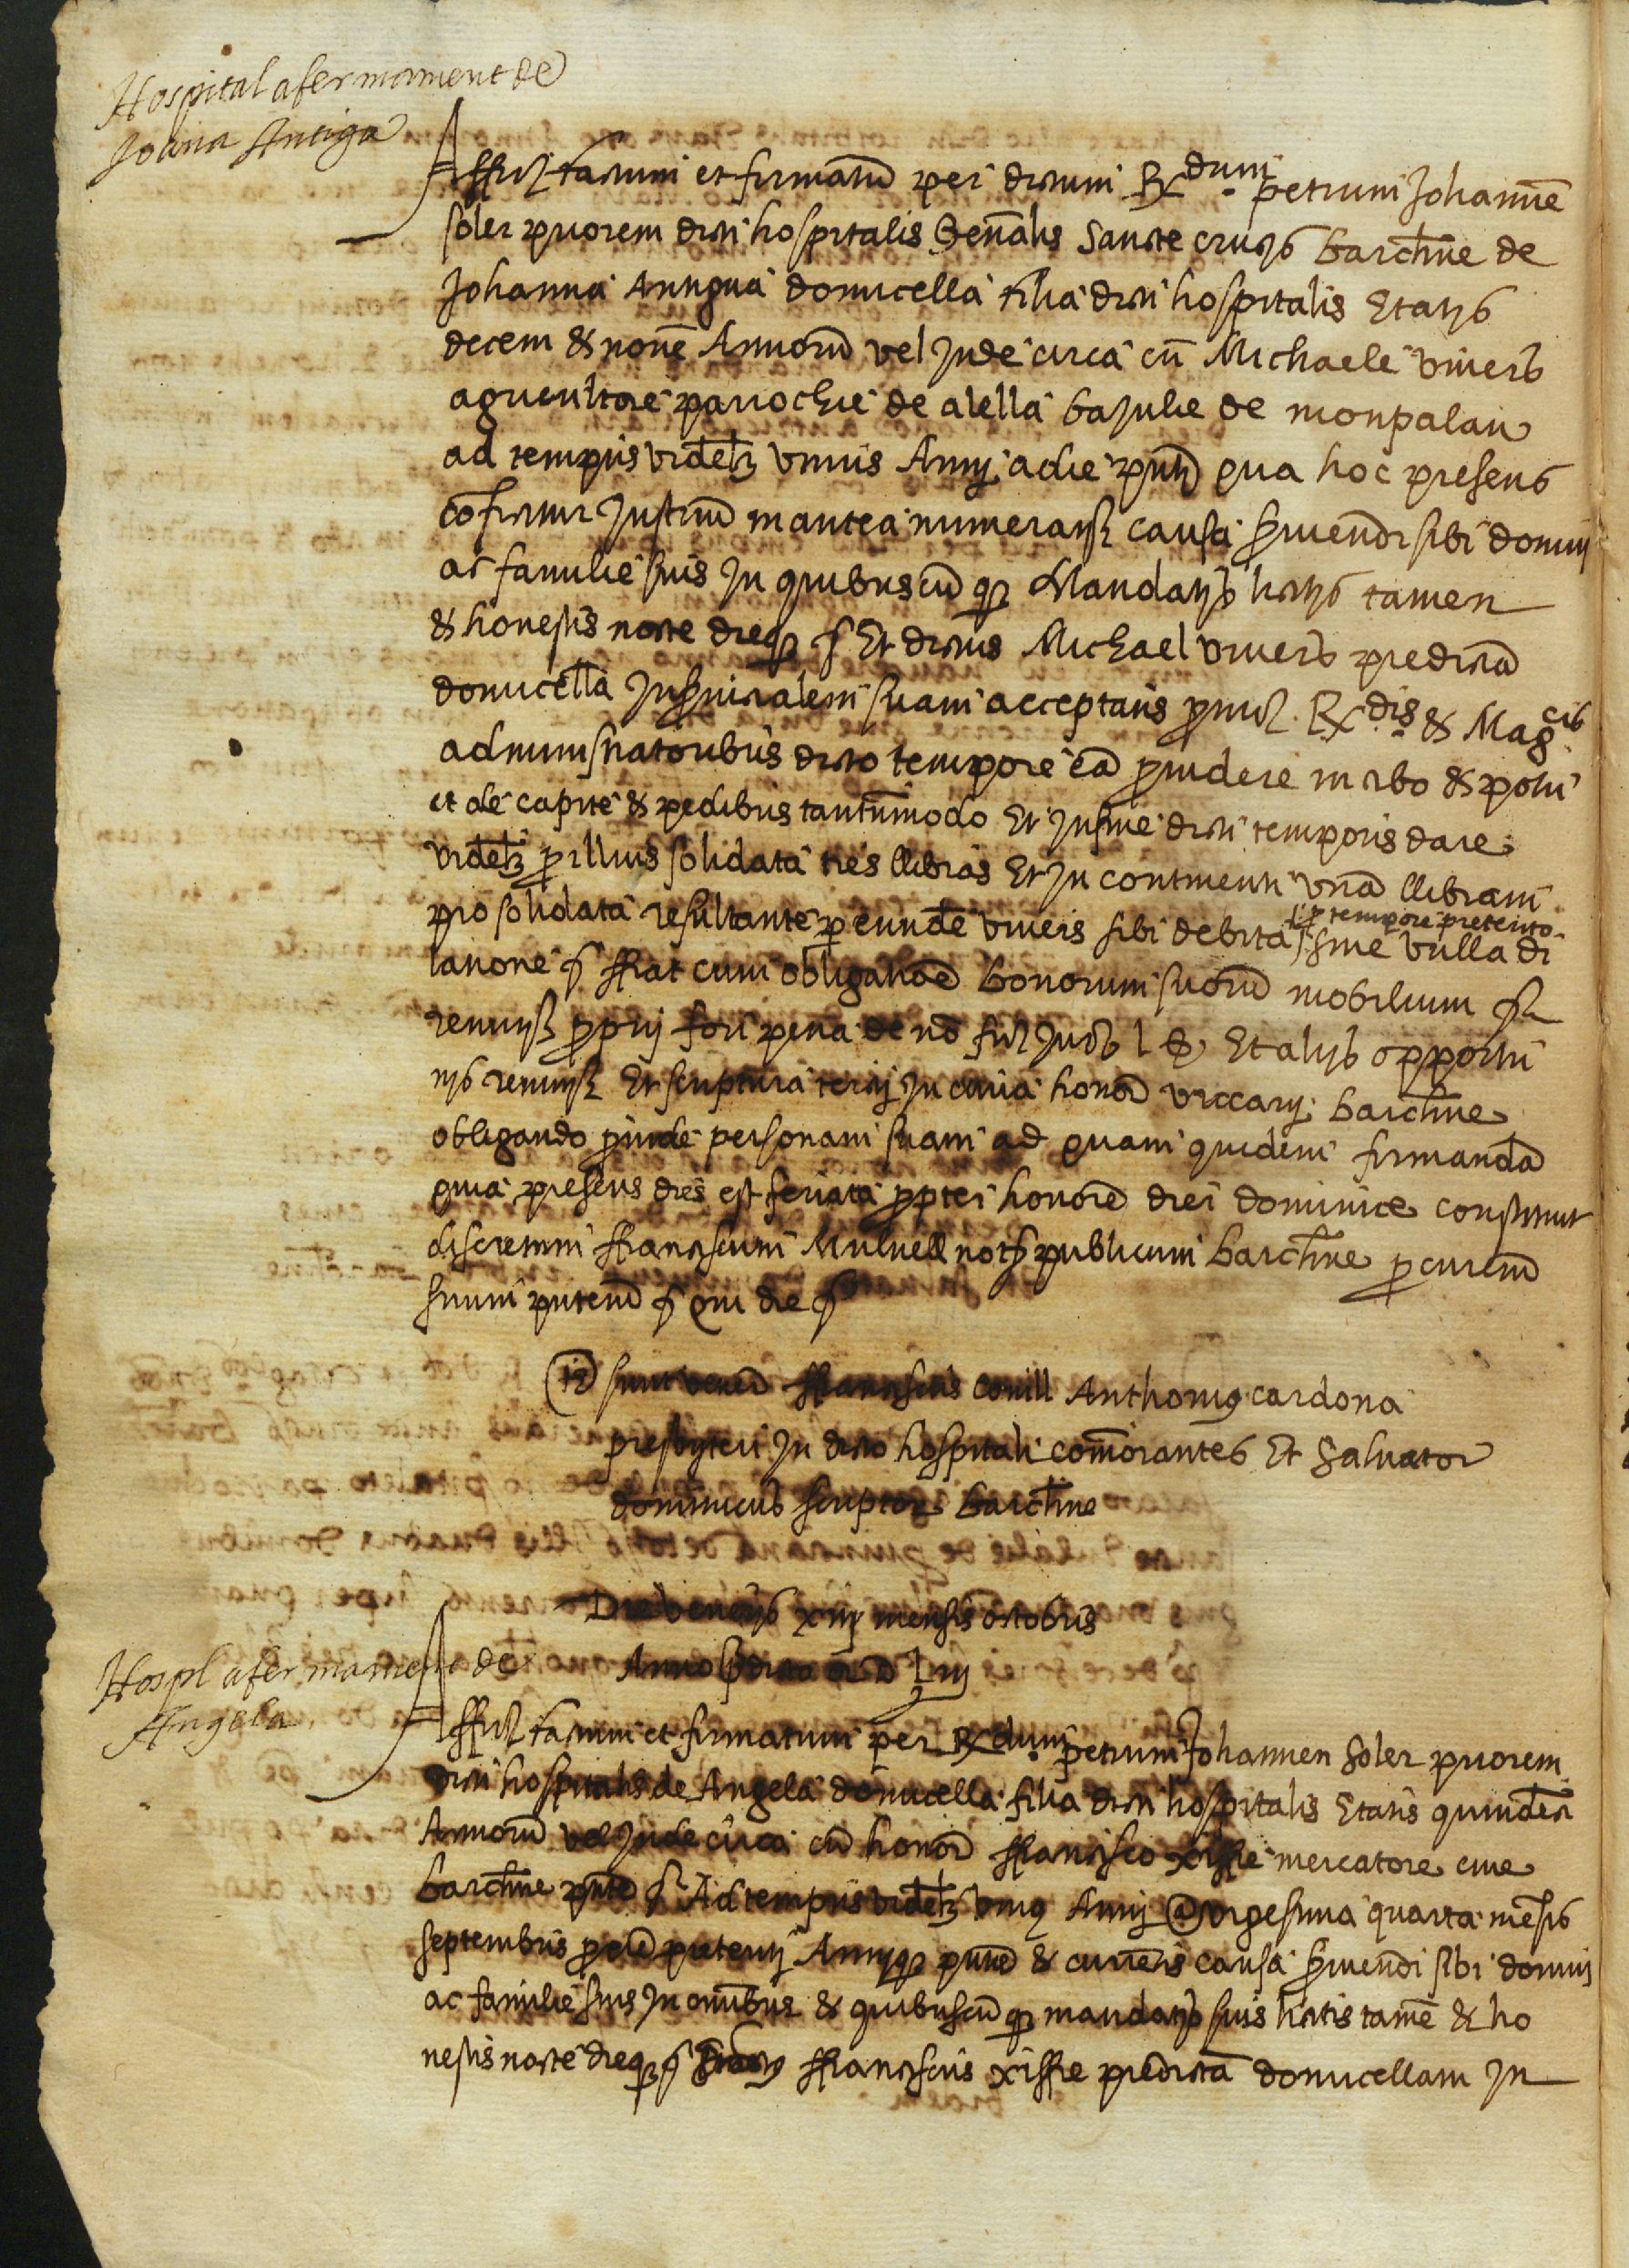 Hospital afermament de
Joana Antiga
Affuit factum et firmatũ per dictum Rdum petrum Johannẽ
soler priorem dicti hospitalis Genãlis Sancte crucis barchne de
Johanna Antigua domicella filia dicti hospitalis Etatis
decem & novẽ Annorũ vel Inde circa cũ Michaele vivers
agricultore parrochie de alella bajulie de monpalau
ad tempus videlz unius Anny adie pñti qua hoc presens
cõficitur Instrũ in antea numerand causa serviendi sibi domuy
ac familie suis In quibuscũ que Mandatis licitis tamen
& honestis nocte dieque Et dictus Michael vivers predictã
domicellã In servicialem suam acceptans promit Rdis & Magcis
administratoribus dicto tempore eã providere in cibo & potu
et de capite & pedibus tantummodo Et In fine dicti temporis dare
videlz pro illius solidata tres llibras Et In continenti unã llibram
pro solidata resultante per eundẽ vivers sibi debita sine ulla di
de tempore preterito
latione fiat cum obligationẽ bonorum suorũ mobilium
renuntiatione proprii fori pena de nõ Et aliis opportu
nis renuntiat Et scriptura tercii In curia honor viccarii barchne
obligando proinde personam suam ad quam quidem firmandã
quia presens dies est feriata propter honorẽ diei dominice constituit
discretum ffranciscum Mulnell not publicum barchne procurem
suum pñtem qui die
sunt vener ffranciscus conill Anthonius cardona
presbyteri In dicto hospitali comorantes Et Salvator
dominicus scriptor barchne
Die veneris xiii mensis octobris
Anno predicto
Hospl afermament de
Angela
Affuit factum et firmatum per Rdum petrum Johannen Soler priorem
dicti hospitalis de Angela domicella filia dicti hospitalis Etatis quindecim
Annorũ vel Inde circa cũ honor ffrancisco xiffre mercatore cive
barchne pñte Ad tempus videlz unius Anny a vigesima quarta mẽsis
septembris proxime preteriti Annique pñtis & currentis causa serviendi sibi domuy
ac familie suis In omnibus & quibuscũ que mandatis suis licitis tamẽ & ho
nestis nocte dieque ffranciscus xiffre predictã domicellam In